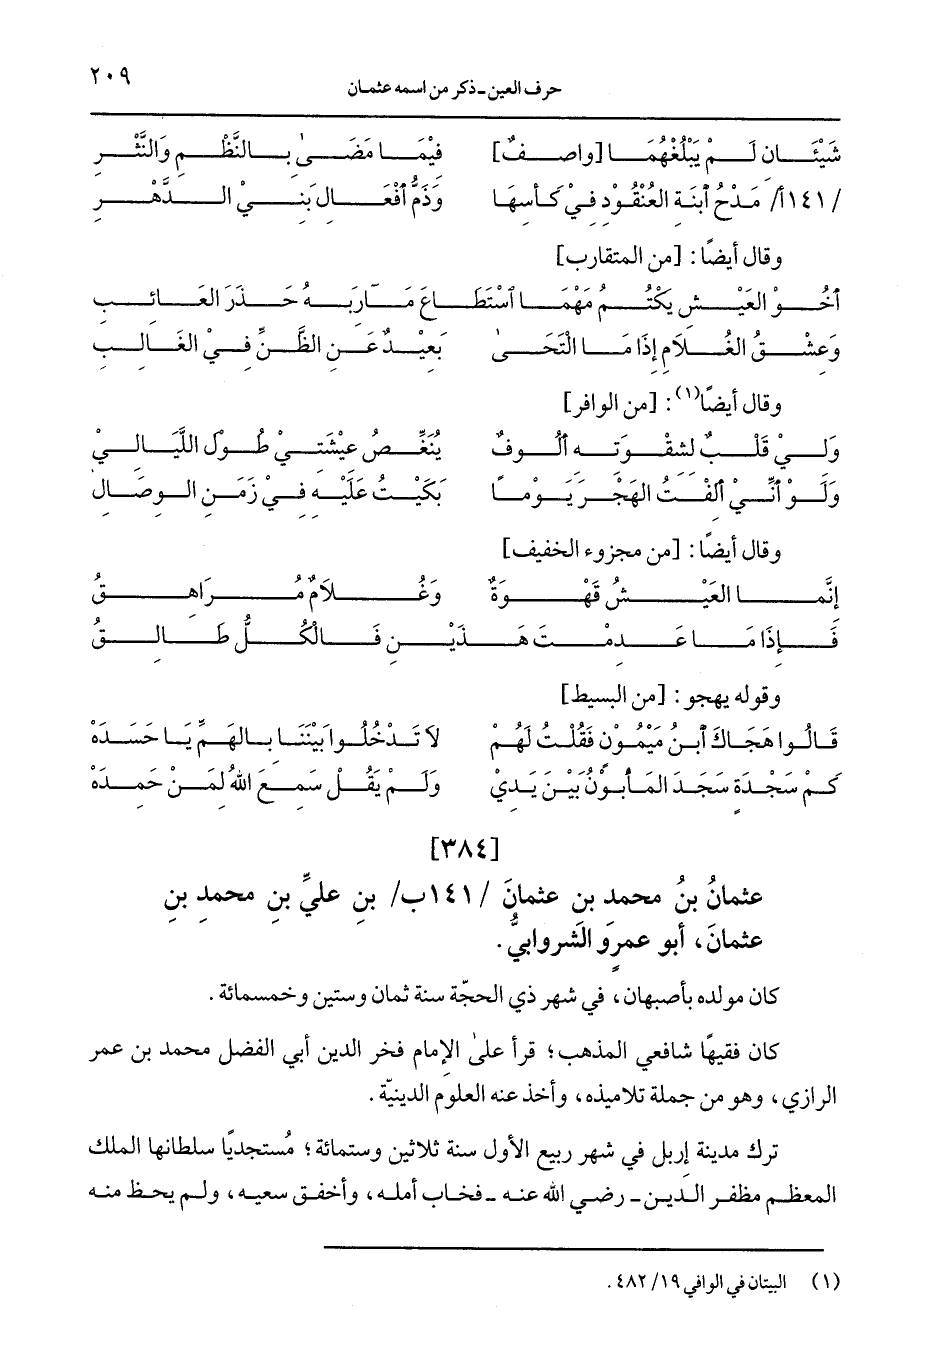 ٢٠٩
حرف العين ـ ذكر من اسمه عثمان
شَيْئَانِ لَمْ يَبْلُغْهُمَا [واصفٌ] فِيْمَا مَضَىٰ بِالنَّظْمِ وَالنَّثْرِ
/١٤١أ/ مَدْحُ ٱبنَةِ العُنْقُودِ فِيْ كَأْسِهَا وَذَمُّ أَفْعَالِ بَنِيْ الدَّهْرِ
وقال أيضًا: [من المتقارب]
أَخُوْ العَيْشِ يَكْتُمُ مَهْمَا ٱسْتَطَاعَ مَآرِبَهُ حَذَرَ العَائِبِ
وَعِشْقُ الغُلاَمِ إِذَا مَا الْتَحَىٰ بَعِيْدٌ عَنِ الظَّنِّ فِيْ الغَالِبِ
وقال أيضًا(١): [من الوافر]
وَلِيْ قَلْبٌ لِشِقْوَتِهِ أَلُوفٌ يُنَغِّصُ عِيْشَتِيْ طُوْلَ اللَّيَالِيْ
وَلَوْ أَنِّيْ أَلِفْتُ الهَجْرَ يَوْمًا بَكَيْتُ عَلَيْهِ فِيْ زَمَنِ الوِصَالِ
وقال أيضًا: [من مجزوء الخفيف]
إِنَّمَا العَيْشُ قَهْوَةٌ وَغُلاَمٌ مُرَاهِقُ
فَإِذَا مَا عَدِمْتَ هَذَيْنِ فَالْكُلُّ طَالِقُ
وقوله يهجو: [من البسيط]
قَالُوا هَجَاكَ ٱبنُ مَيْمُوْنٍ فَقُلْتُ لَهُمْ لاَ تَدْخُلُوا بَيْنَنَا بِالهَمِّ يَا حَسَدَهْ
كَمْ سَجْدَةٍ سَجَدَ المَأْبُوْنُ بَيْنَ يَدِيْ وَلَمْ يَقُلْ سَمِعَ اللهُ لِمَنْ حَمِدَهْ
[٣٨٤]
عثمانُ بنُ محمدِ بنِ عثمانَ /١٤١ب/ بنِ عليِّ بنِ محمدِ بنِ
عثمانَ، أبو عمرٍو الشَروابيُّ.
كان مولده بأصبهان، في شهر ذي الحجّة سنة ثمان وستين وخمسمائة.
كان فقيهًا شافعي المذهب؛ قرأ علىٰ الإِمام فخر الدين أبي الفضل محمد بن عمر
الرازي، وهو من جملة تلاميذه، وأخذ عنه العلوم الدينيّة.
ترك مدينة إربل في شهر ربيع الأول سنة ثلاثين وستمائة؛ مُستجديًا سلطانها الملك
المعظم مظفر الدين ـ رضي الله عنه ـ فخاب أمله، وأخفق سعيه، ولم يحظ منه
(١) البيتان في الوافي ١٩/ ٤٨٢.